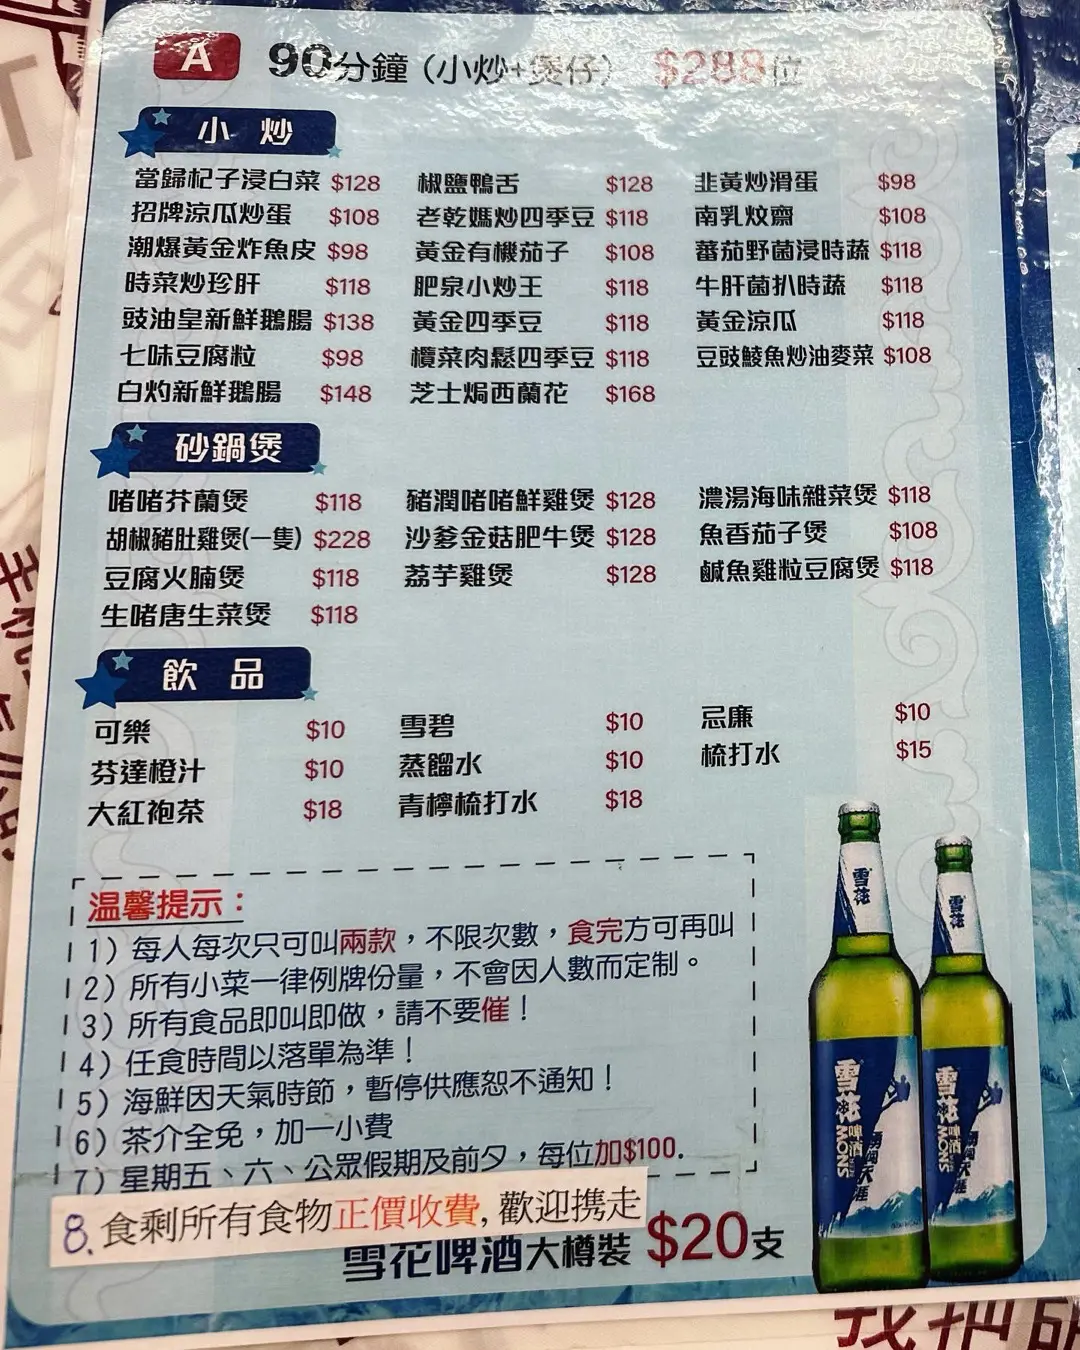 A 90分鐘（小炒+煲仔） $288位
小 炒
當歸杞子浸白菜 $128 椒鹽鴨舌 $128 韭黃炒滑蛋 $98
招牌涼瓜炒蛋 $108 老乾媽炒四季豆 $118 南乳炆齋 $108
潮爆黃金炸魚皮 $98 黃金有機茄子 $108 蕃茄野菌浸時蔬 $118
時菜炒珍肝 $118 肥泉小炒王 $118 牛肝菌扒時蔬 $118
豉油皇新鮮鵝腸 $138 黃金四季豆 $118 黃金涼瓜 $118
七味豆腐粒 $98 欖菜肉鬆四季豆 $118 豆豉鯪魚炒油麥菜 $108
白灼新鮮鵝腸 $148 芝士焗西蘭花 $168
砂鍋煲
啫啫芥蘭煲 $118 豬潤啫啫鮮雞煲 $128 濃湯海味雜菜煲 $118
胡椒豬肚雞煲(一隻) $228 沙爹金菇肥牛煲 $128 魚香茄子煲 $108
豆腐火腩煲 $118 荔芋雞煲 $128 鹹魚雞粒豆腐煲 $118
生啫唐生菜煲 $118
飲 品
可樂 $10 雪碧 $10 忌廉 $10
芬達橙汁 $10 蒸餾水 $10 梳打水 $15
大紅袍茶 $18 青檸梳打水 $18
温馨提示：
1）每人每次只可叫兩款，不限次數，食完方可再叫
2）所有小菜一律例牌份量，不會因人數而定制。
3）所有食品即叫即做，請不要催！
4）任食時間以落單為準！
5）海鮮因天氣時節，暫停供應恕不通知！
6）茶介全免，加一小費
7）星期五、六、公眾假期及前夕，每位加$100.
8.食剩所有食物正價收費,歡迎携走
雪花啤酒大樽裝 $20支
雪花
雪花
雪花
啤酒
勇闖天涯
雪花
啤酒